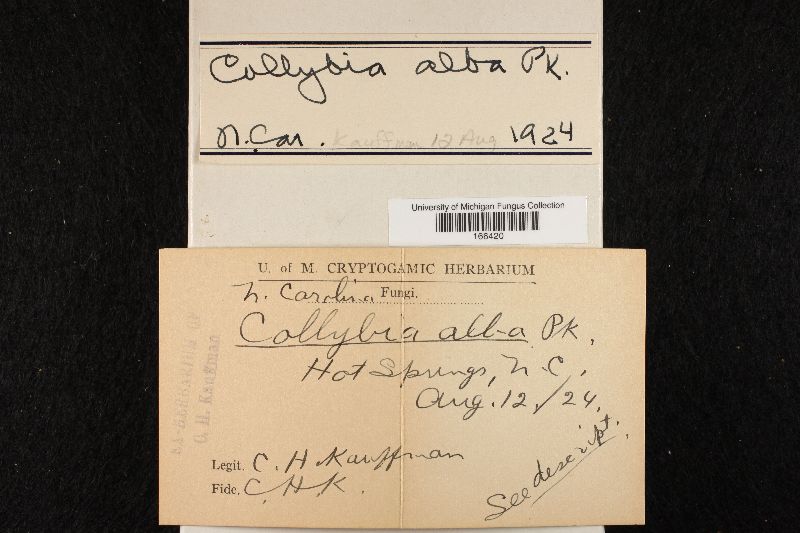 Collybia alba Pk.
N. Car. Kauffman 12 Aug 1924
University of Michigan Fungus Collection
166420
U. of M. CRYPTOGAMIC HERBARIUM
N. Carolina Fungi.
Collybia alba Pk.
Hot Springs, N.C.
Aug. 12, /24.
EX-HERBARIUM OF
C. H. Kauffman
Legit. C. H. Kauffman
Fide. C.H.K.
See descript.